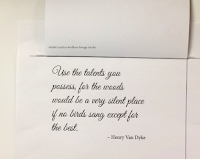 Use the talents you
possess, for the woods
would be a very silent place
if no birds sang except for
the best.
~ Henry Van Dyke